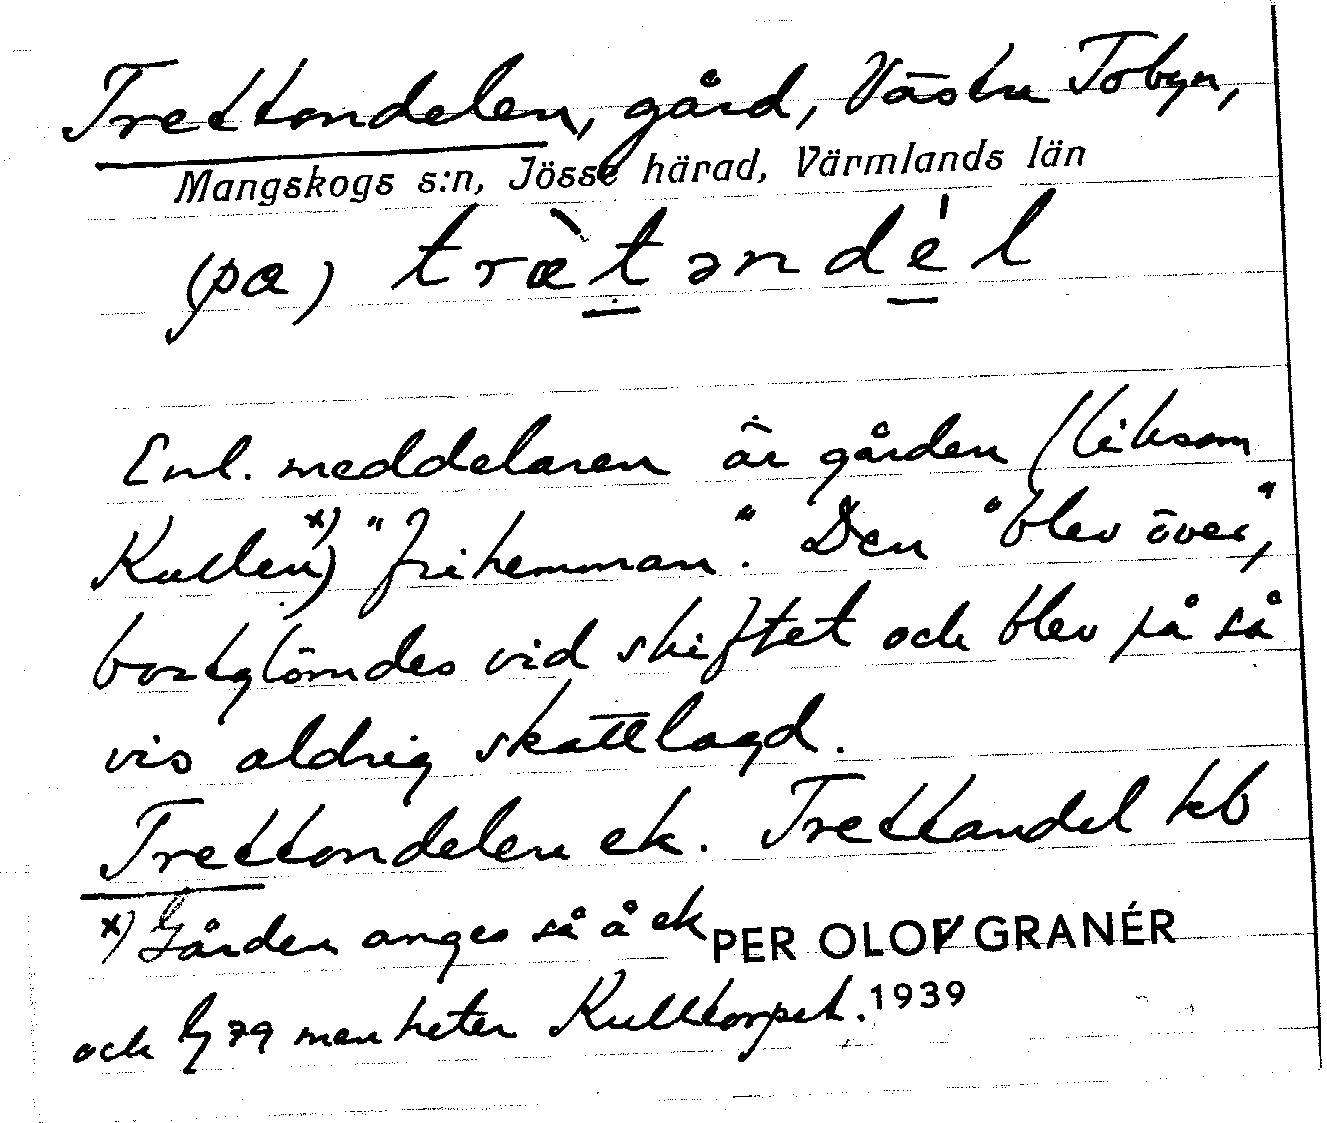 Trettondelen, gård, Västra Tobyn,
Mangskogs s:n, Jösse härad, Värmlands län
(pa) træ̀təndél
Enl. meddelaren är gården (liksom
Kullen x)) "frihemman". Den "blev över",
bortglömdes vid skiftet och blev på så
vis aldrig skattlagd.
Trettondelen ek. Trettandel kb
x) Gården anges så å ek
PER OLOF GRANÉR
och 79 men heter Kulltorpet.
1939